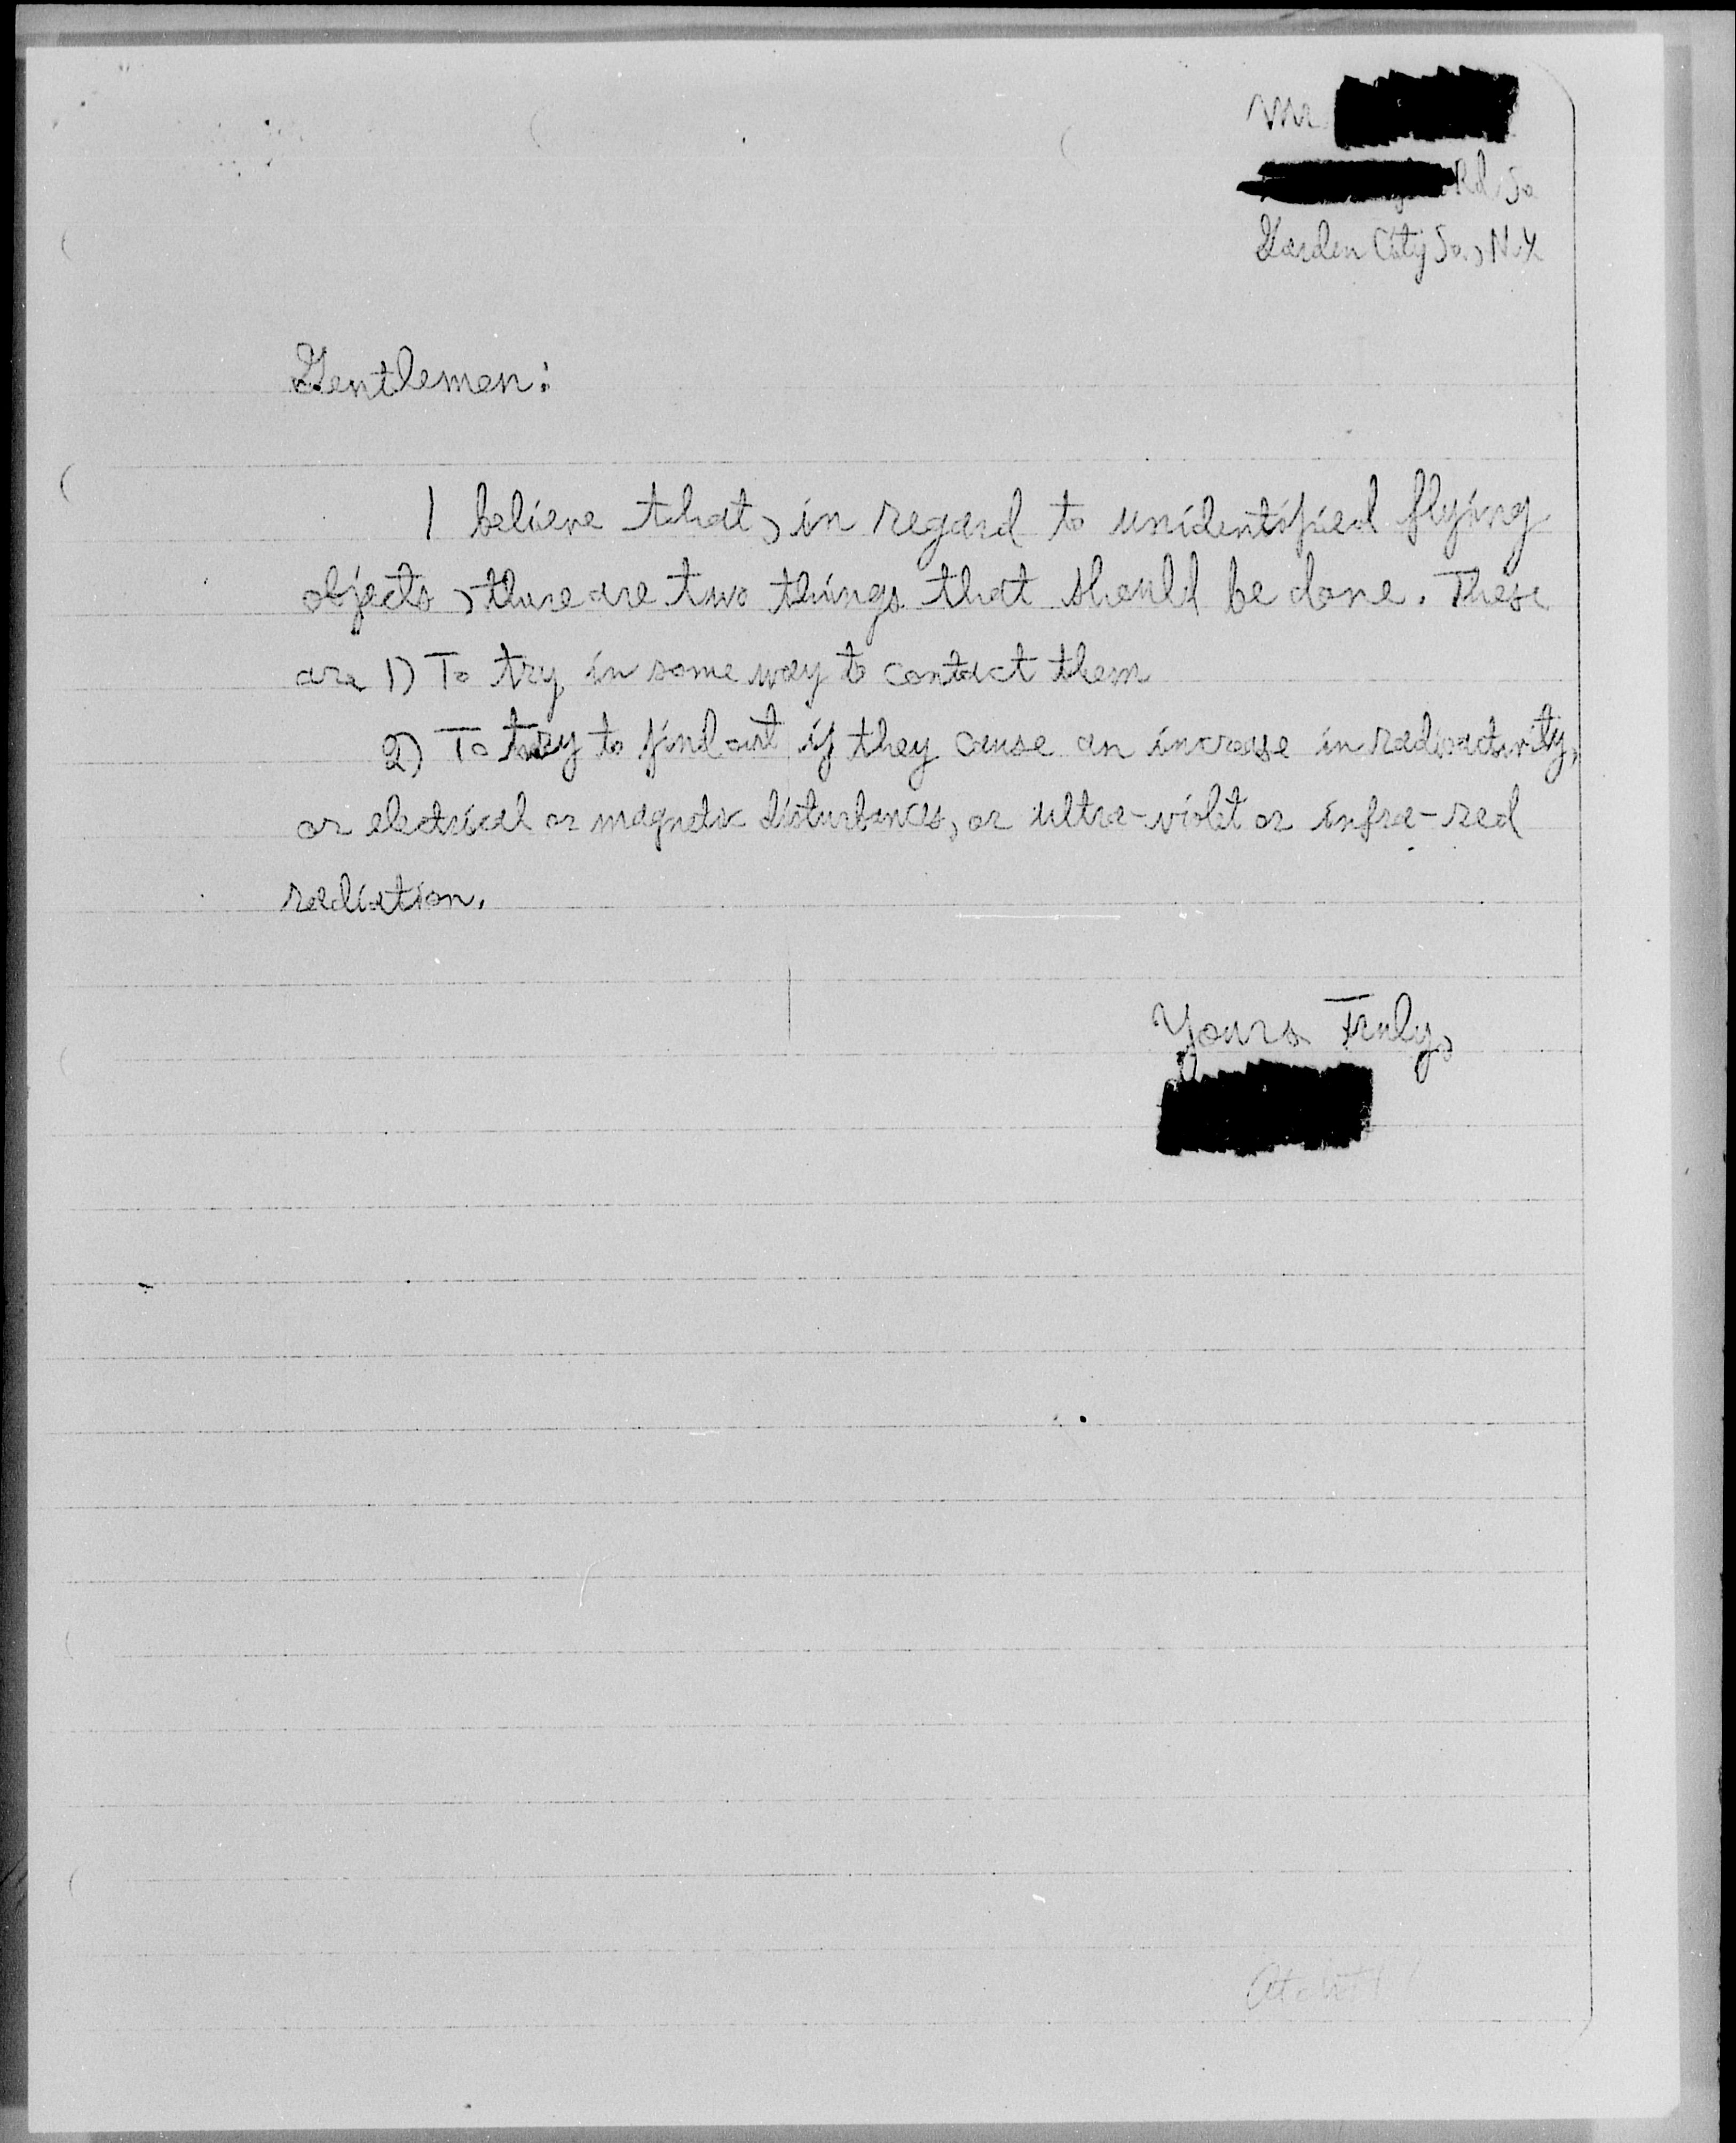 Mr.
Rd. So.
Garden City So., N.Y.
Gentlemen:
I believe that, in regard to unidentified flying
objects, there are two things that should be done. These
are 1) To try in some way to contact them
2) To try to find out if they cause an increase in radioactivity,
or electrical or magnetic disturbances, or ultra-violet or infra-red
radiation.
Yours Truly,